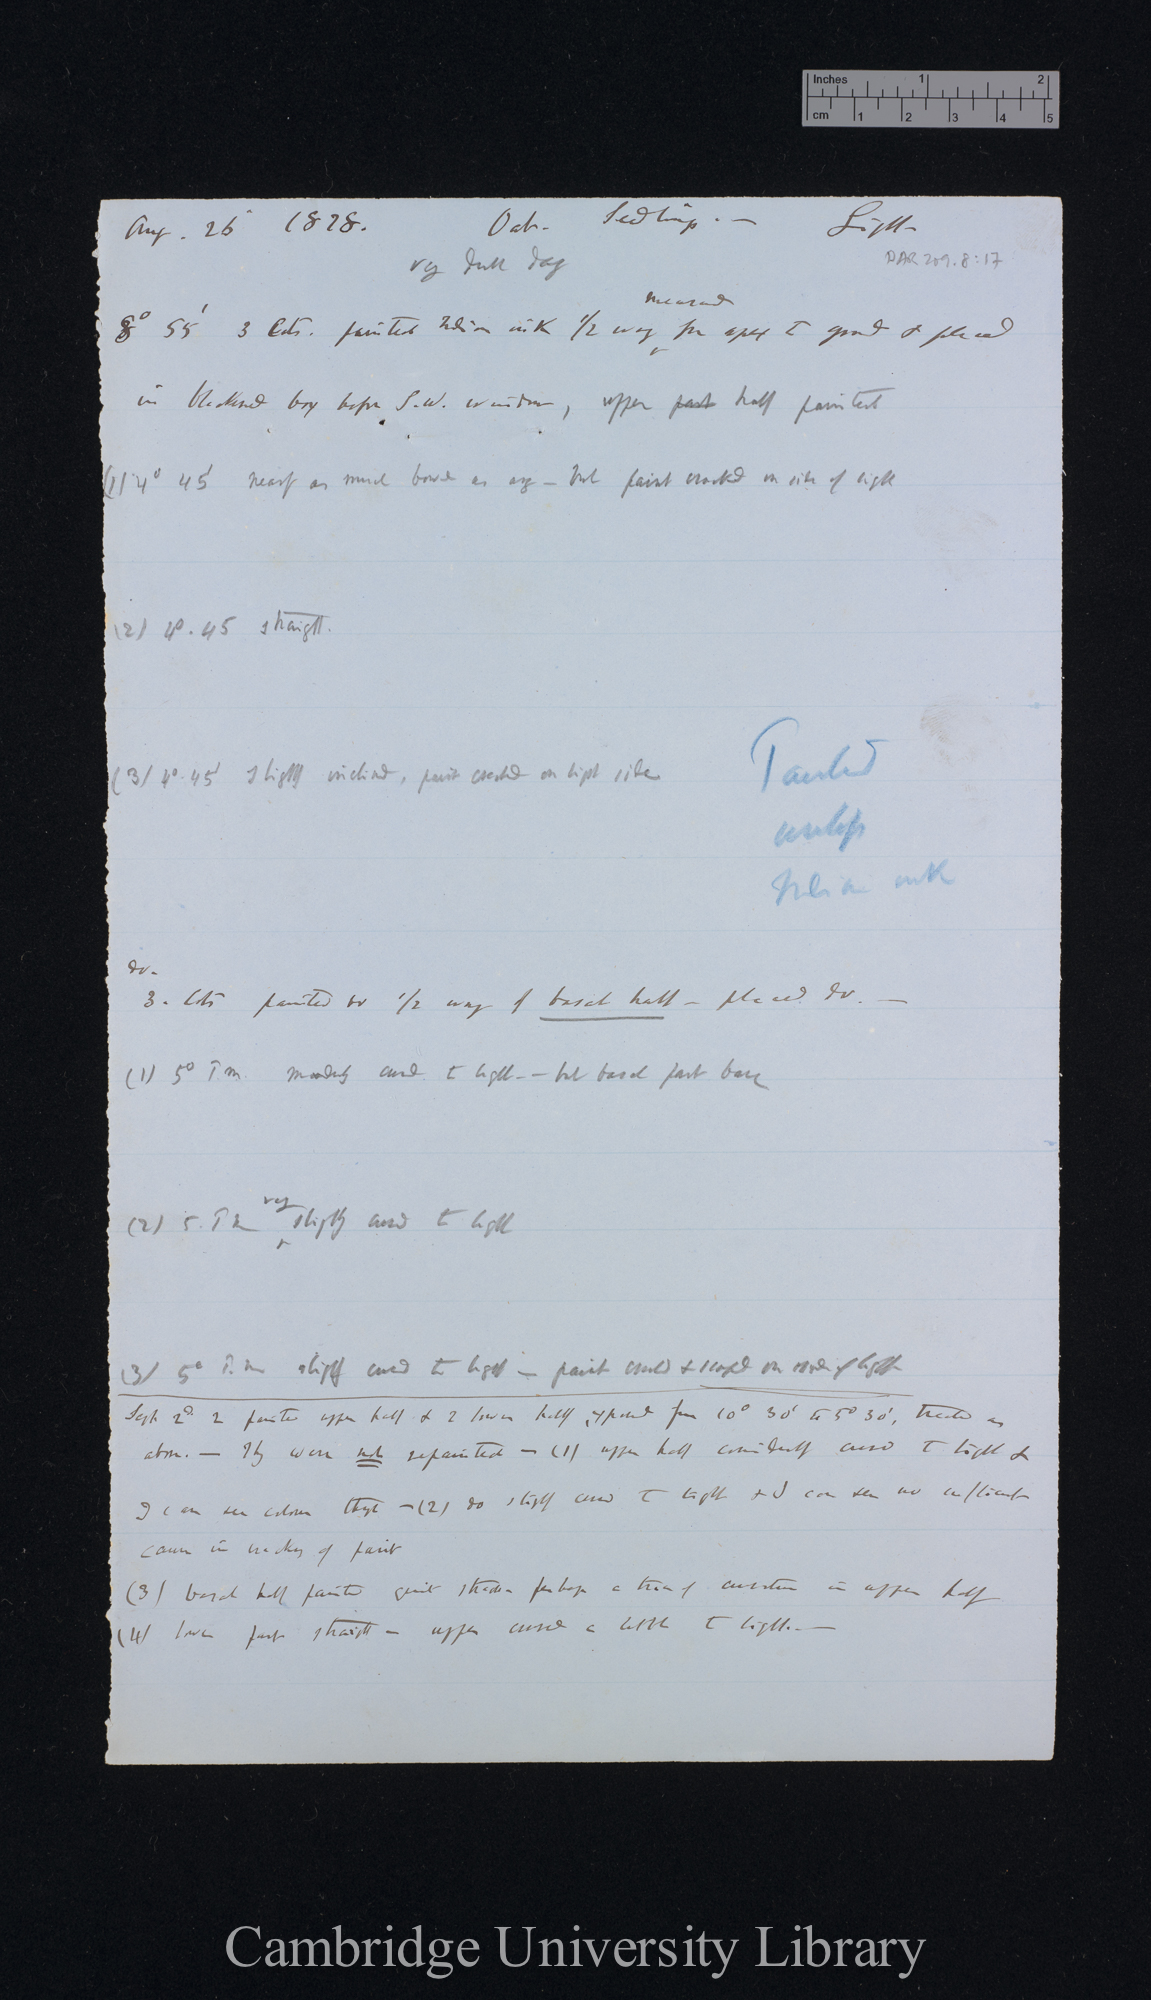 Inches 1 2
cm 1 2 3 4 5
Aug. 26 1878. Oat. Seedlings. — Light
very dull day
DAR 209.8:17
measured
8° 55' 3 Cots. painted Indian ink 1/2 way from apex to ground & placed
in blackened box before S.W. window, upper part half painted
(1) 4° 45' nearly as much bowed as any — but paint cracked on side of light
(2) 4°.45 straight.
(3) 4°.45' slightly inclined, paint cracked on light side
Painted
with
Indian ink
do.
3. Cots painted do 1/2 way of basal half — placed do. —
(1) 5° P.m. moderately curved to light — but basal part bare
very
(2) 5. P.m slightly curved to light
(3) 5° P.m slightly curved to light — paint cracked & scaped on side of light
Sept 2d. 2 painted upper half & 2 lower half, exposed from 10° 30' to 5° 30', treated as
above. — They were not repainted — (1) upper half considerably curved to light &
I can see colour through — (2) do slightly curved to light & I can see no sufficient
cause in cracking of paint
(3) basal half painted quite straight perhaps a trace of curvature in upper half
(4) lower part straight — upper curved a little to light. —
Cambridge University Library